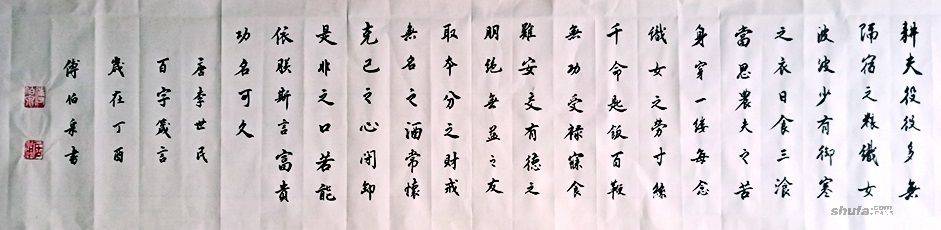 耕夫役役多無
隔宿之糧織女
波波少有御寒
之衣日食三飡
當思農夫之苦
身穿一缕每念
織女之劳寸絲
千命匙飯百鞭
無功受祿寐食
雖安交有德之
朋絶無益之友
取本分之財戒
無名之酒常懷
克己之心闭却
是非之口若能
依朕斯言富貴
功名可久
唐李世民
百字箴言
歲在丁酉
傅伯泉書
shufa.com